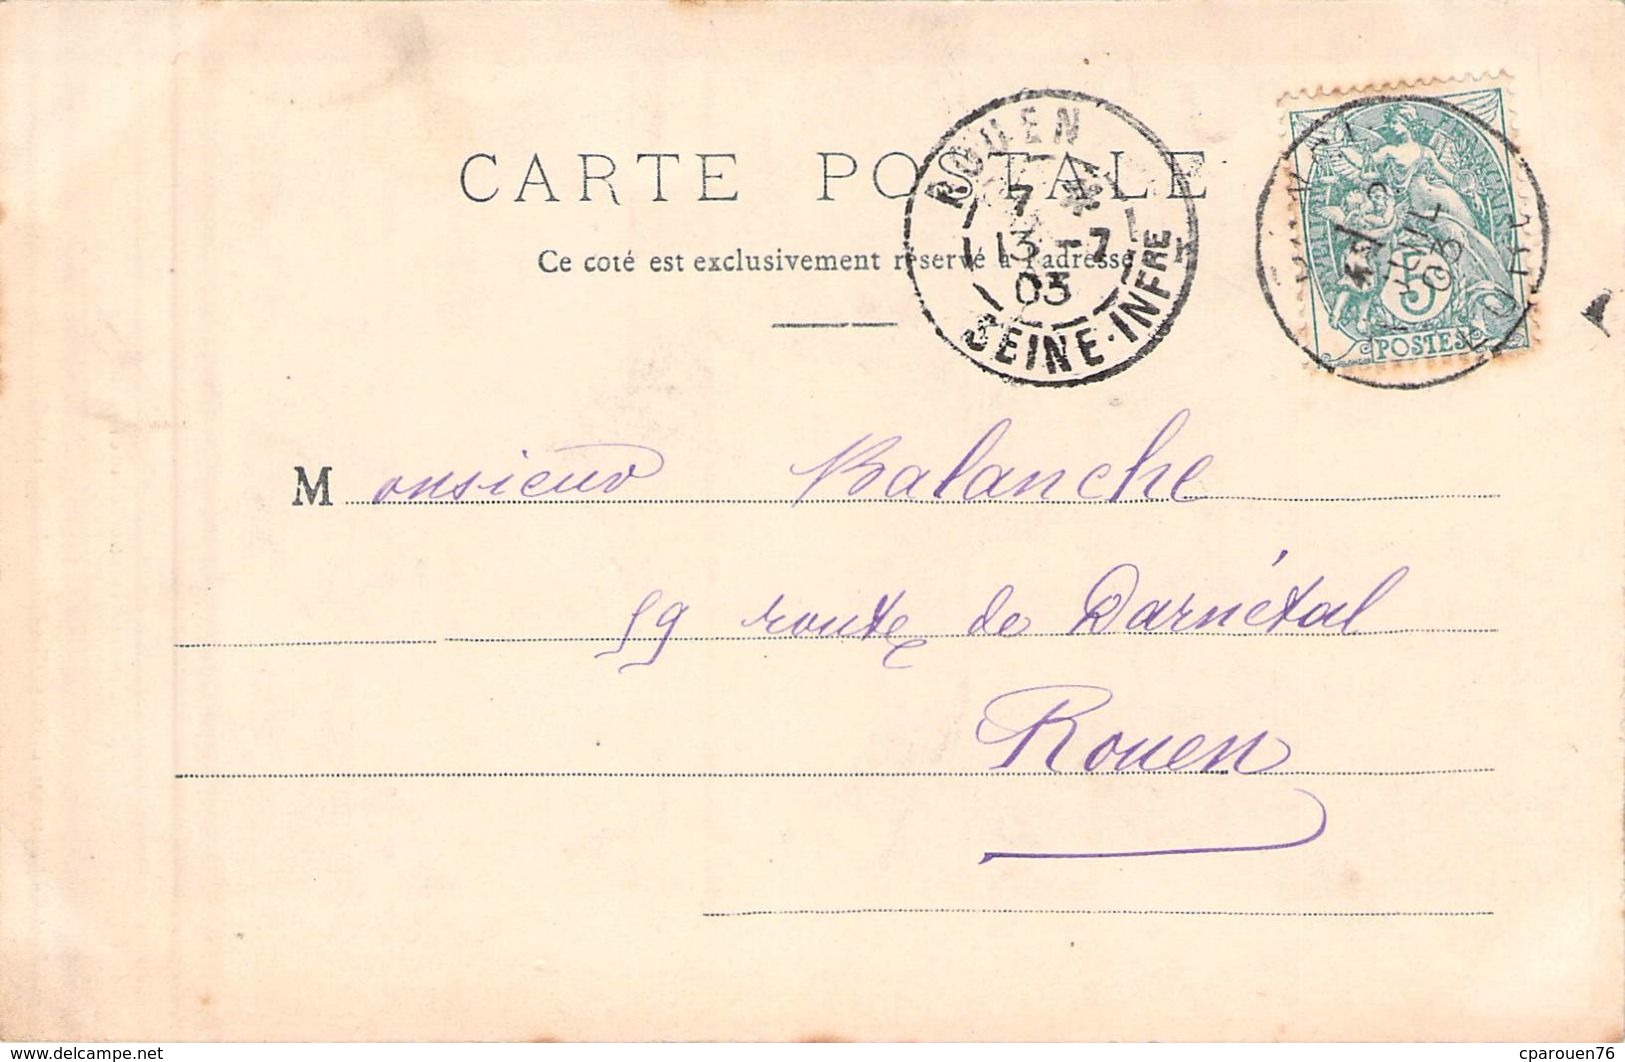 CARTE POSTALE
Ce coté est exclusivement réservé à l'adresse
ROUEN
7
13 -7
03
SEINE-INFRE
JUIL
03
5
POSTES
Monsieur Balanche
59 route de Darnétal
Rouen
www.delcampe.net
cparouen76